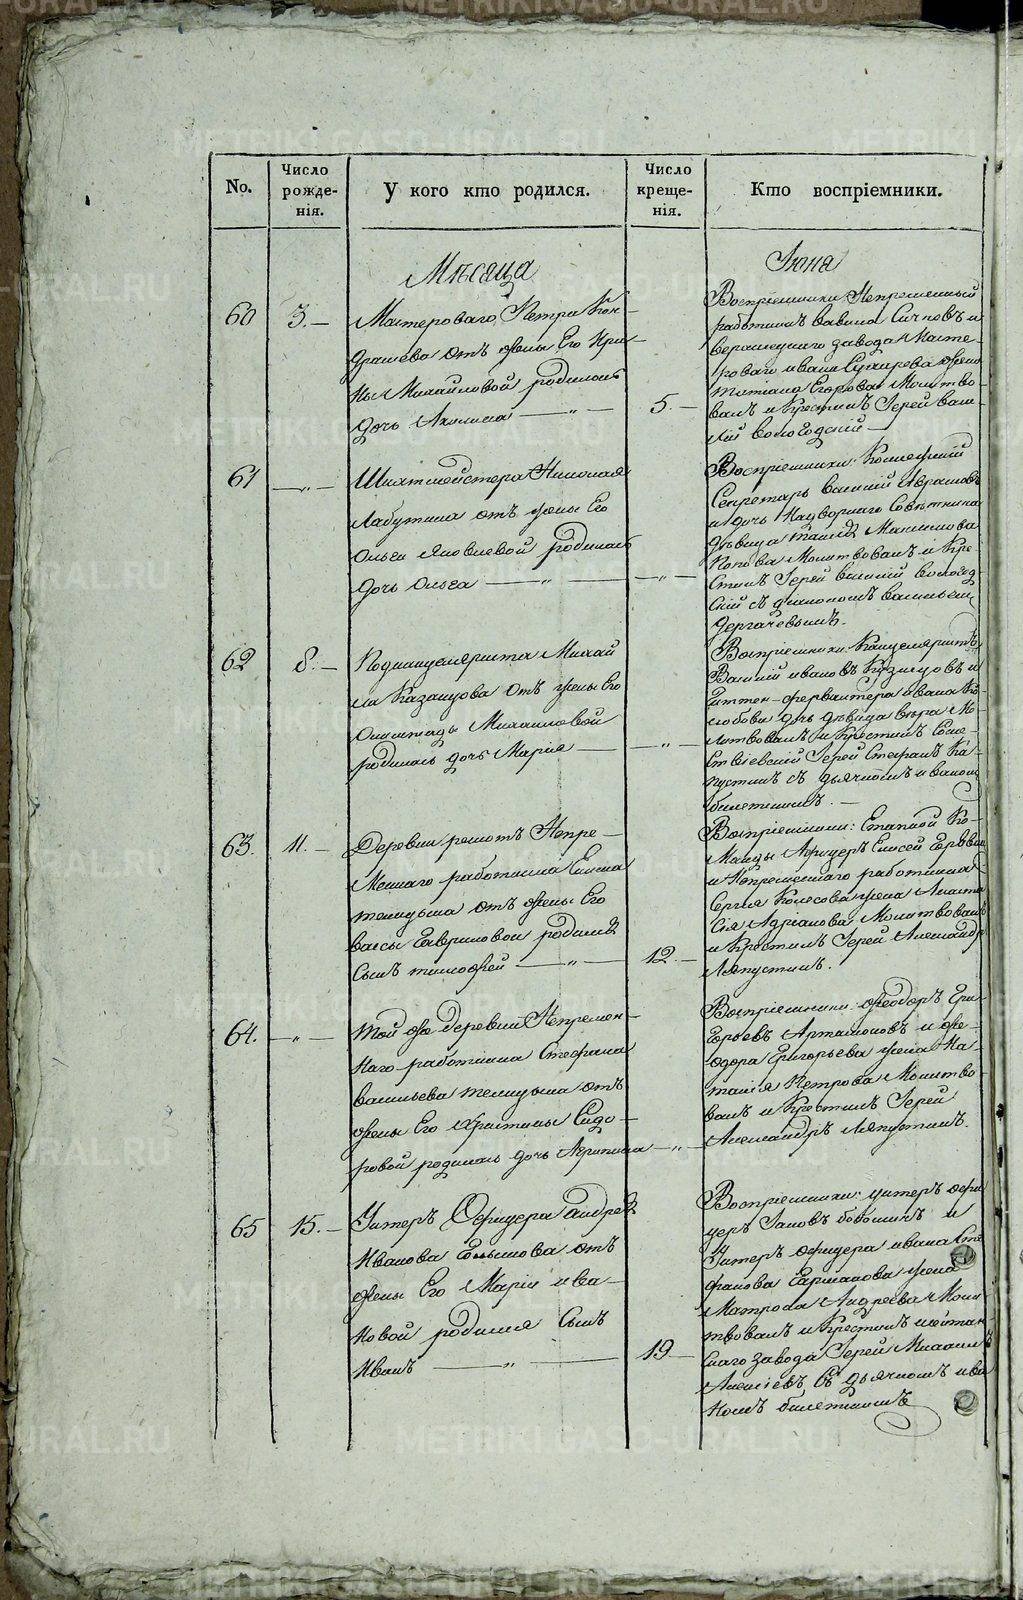 METRIKI.GASO-URAL.RU
No.
Число рожде-нія.
У кого кто родился.
Число креще-нія.
Кто воспріемники.
Мѣсяца
Іюня
60
3.—
Мастероваго Петра Кон-
драшева отъ жены Его Ири-
ны Михайловой родилась
дочь Акилина — „ —
5.—
Воспріемники: Непременный
работникъ вавила Сычевъ и
завода Масте-
роваго ивана жена
татіана Егорова Молитво-
валъ и Крестилъ Іерей васи-
лій вологодскій —
61
— „ —
Шихтмейстера Николая
Лабутина отъ жены Его
Ольги Яковлевой родилась
дочь Ольга — „ —
— „ —
Воспріемники:
Секретарь василій Аврамовъ
и дочь Надворнаго Совѣтника
дѣвица Максимова
Попова Молитвовалъ и Кре-
стилъ Іерей василій вологод-
скій съ діакономъ васильемъ
Дергачевымъ.
62
8.—
Подканцеляриста Михай
ла Казанцова отъ жены Его
Михайловой
родилась дочь Марія —
— „ —
Воспріемники: Канцеляристъ
Василій ивановъ Кузнецовъ и
Гиттен-фервалтера ивана
дочь дѣвица вѣра Мо-
литвовалъ и Крестилъ
Іерей Стефанъ Ка-
пустинъ съ дьячкомъ иваномъ
билеткинымъ. —
63.
11.—
Деревни решотъ Непре-
меннаго работника
отъ жены Его
Гавриловой родился
Сынъ тимофей — „ —
12.—
Воспріемники: Етапной Ко-
манды Афицеръ Елисей
и Непременнаго работника
Сергия Колесова жена Анаста
сія Адріанова Молитвовалъ
и Крестилъ Іерей Александръ
Ляпустинъ.
64.
— „ —
той же деревни Непремен-
наго работника Стефана
васильева отъ
жены Его Христины Сидо-
ровой родилась дочь Агрипина
— „ —
Воспріемники: Феодоръ Гри-
горьевъ Артамоновъ и Фе-
одора Григорьева жена На-
талія Петрова Молитво-
валъ и Крестилъ Іерей
Александръ Ляпустинъ.
65
15.—
Унтеръ Офицера андрея
Иванова отъ
жены Его Маріи ива-
новой родился Сынъ
Иванъ — „ —
19—
Воспріемники: унтеръ офи
церъ и
Унтеръ офицера ивана Сте
фанова жена
Матрона Андреева Моли
твовалъ и Крестилъ
скаго завода Іерей Михаилъ
Алексіевъ, Съ дьячкомъ ива
номъ билеткинымъ